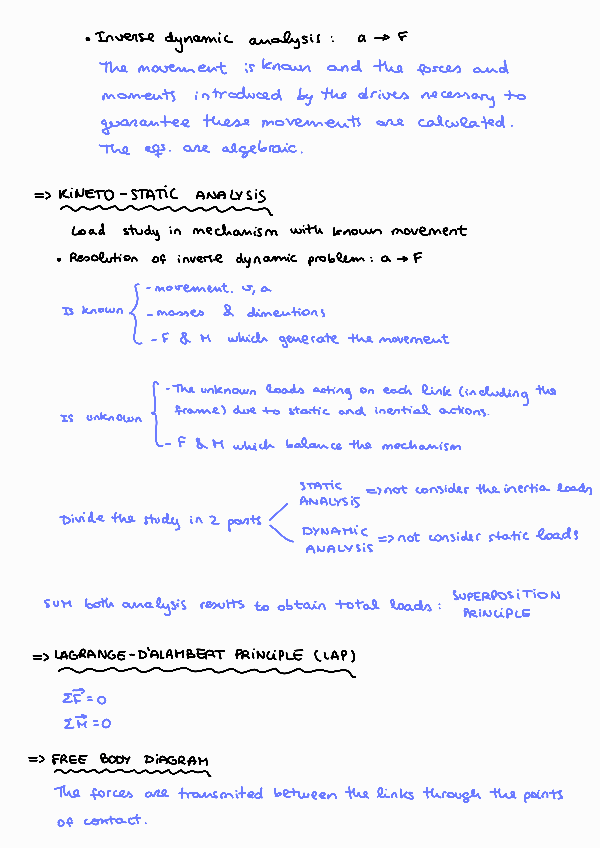 • Inverse dynamic analysis: a → F
The movement is known and the forces and
moments introduced by the drives necessary to
guarantee these movements are calculated.
The eqs. are algebraic.
=> KINETO-STATIC ANALYSIS
Load study in mechanism with known movement
• Resolution of inverse dynamic problem: a → F
Is known { - movement. v, a
- masses & dimentions
- F & M which generate the movement
Is unknown { - The unknown loads acting on each link (including the
frame) due to static and inertial actions.
- F & M which balance the mechanism
Divide the study in 2 parts
STATIC ANALYSIS => not consider the inertia loads
DYNAMIC ANALYSIS => not consider static loads
SUM both analysis results to obtain total loads: SUPERPOSITION PRINCIPLE
=> LAGRANGE-D'ALAMBERT PRINCIPLE (LAP)
ΣF⃗ = 0
ΣM⃗ = 0
=> FREE BODY DIAGRAM
The forces are transmited between the links through the points
of contact.